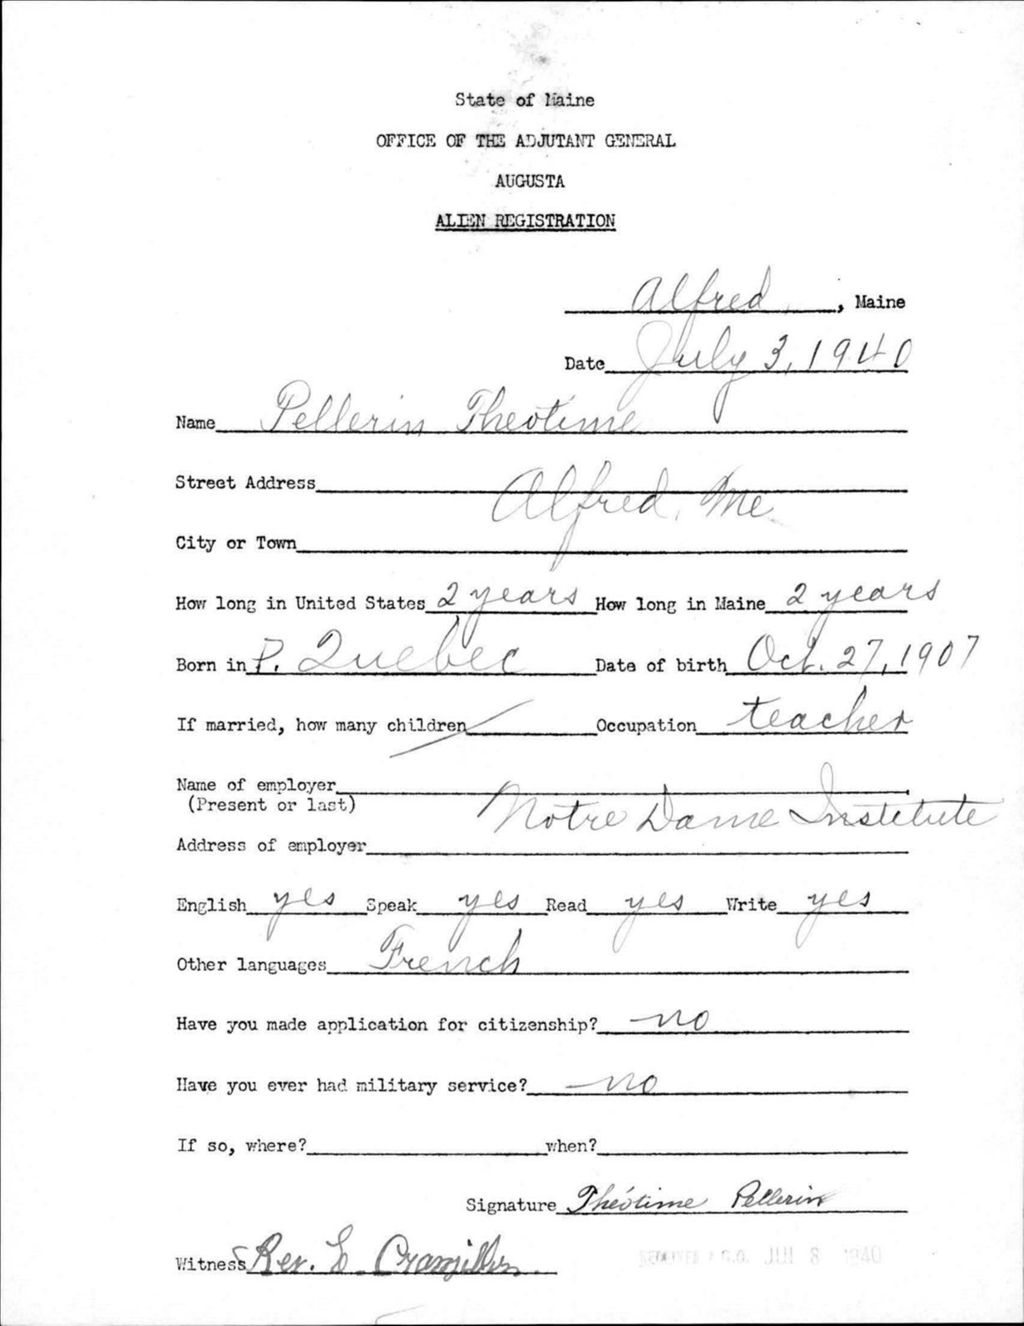 State of Maine
OFFICE OF THE ADJUTANT GENERAL
AUGUSTA
ALIEN REGISTRATION
Alfred, Maine
Date July 3, 1940
Name Pellerin Theotime
Street Address
Alfred, Me
City or Town
How long in United States 2 years How long in Maine 2 years
Born in P. Quebec Date of birth Oct. 27, 1907
If married, how many children Occupation teacher
Name of employer
(Present or last)
Notre Dame Institute
Address of employer
English yes Speak yes Read yes Write yes
Other languages French
Have you made application for citizenship? no
Have you ever had military service? no
If so, where? when?
Signature Théotime Pellerin
Witness Rev. L.
RECEIVED A.G.O. JUL 8 1940